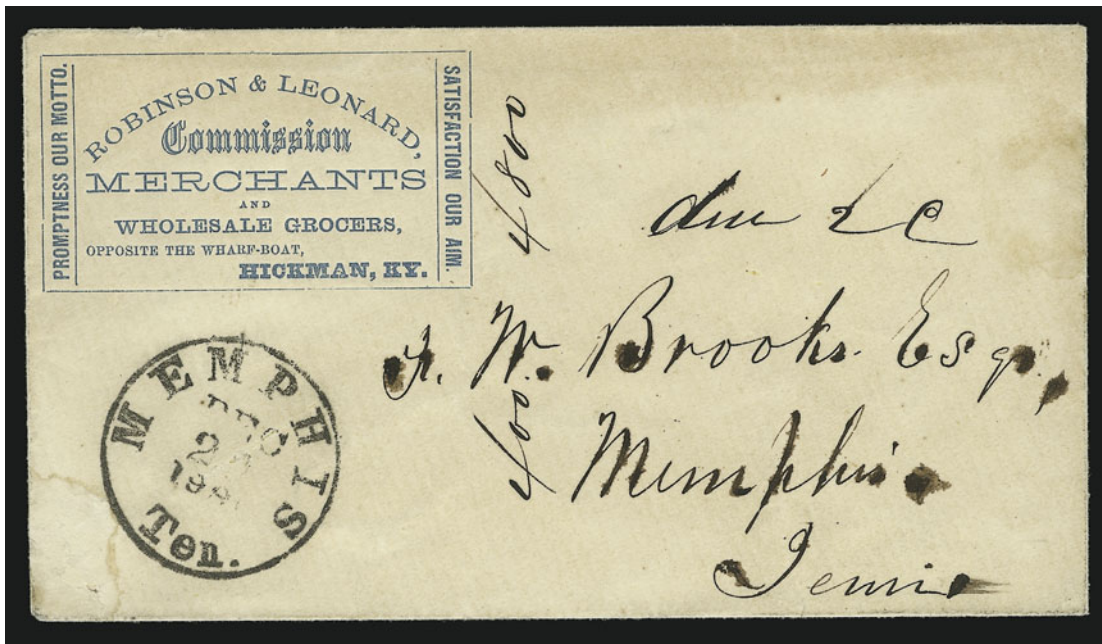 PROMPTNESS OUR MOTTO.
ROBINSON & LEONARD,
Commission
MERCHANTS
AND
WHOLESALE GROCERS,
OPPOSITE THE WHARF-BOAT,
HICKMAN, KY.
SATISFACTION OUR AIM.
4800
400
due 2c
W. Brooks Esq,
Memphis
Tenn
MEMPHIS
DEC
Ten.